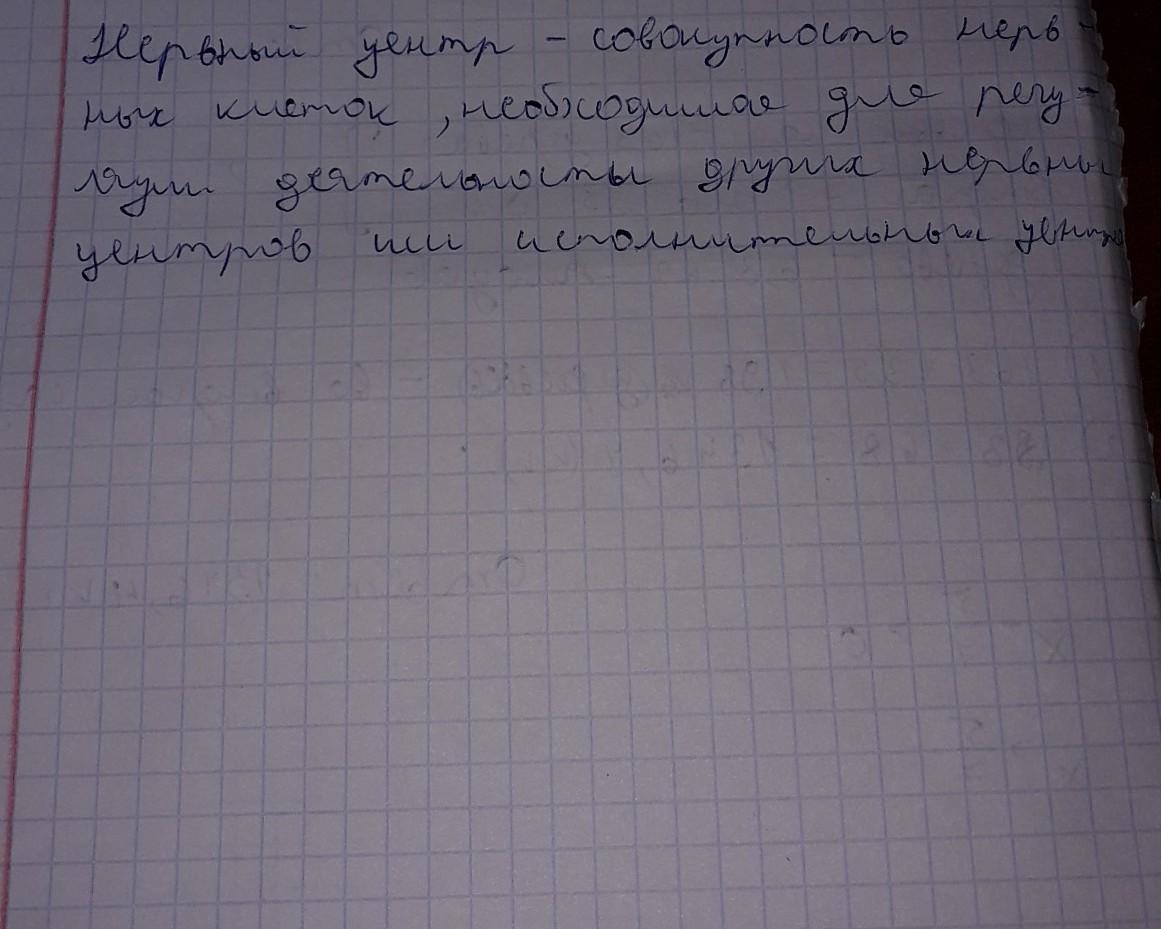 Нервный центр - совокупность нерв-
ных клеток, необходимая для регу-
ляции деятельносты других нервны
центров или исполнительных центро